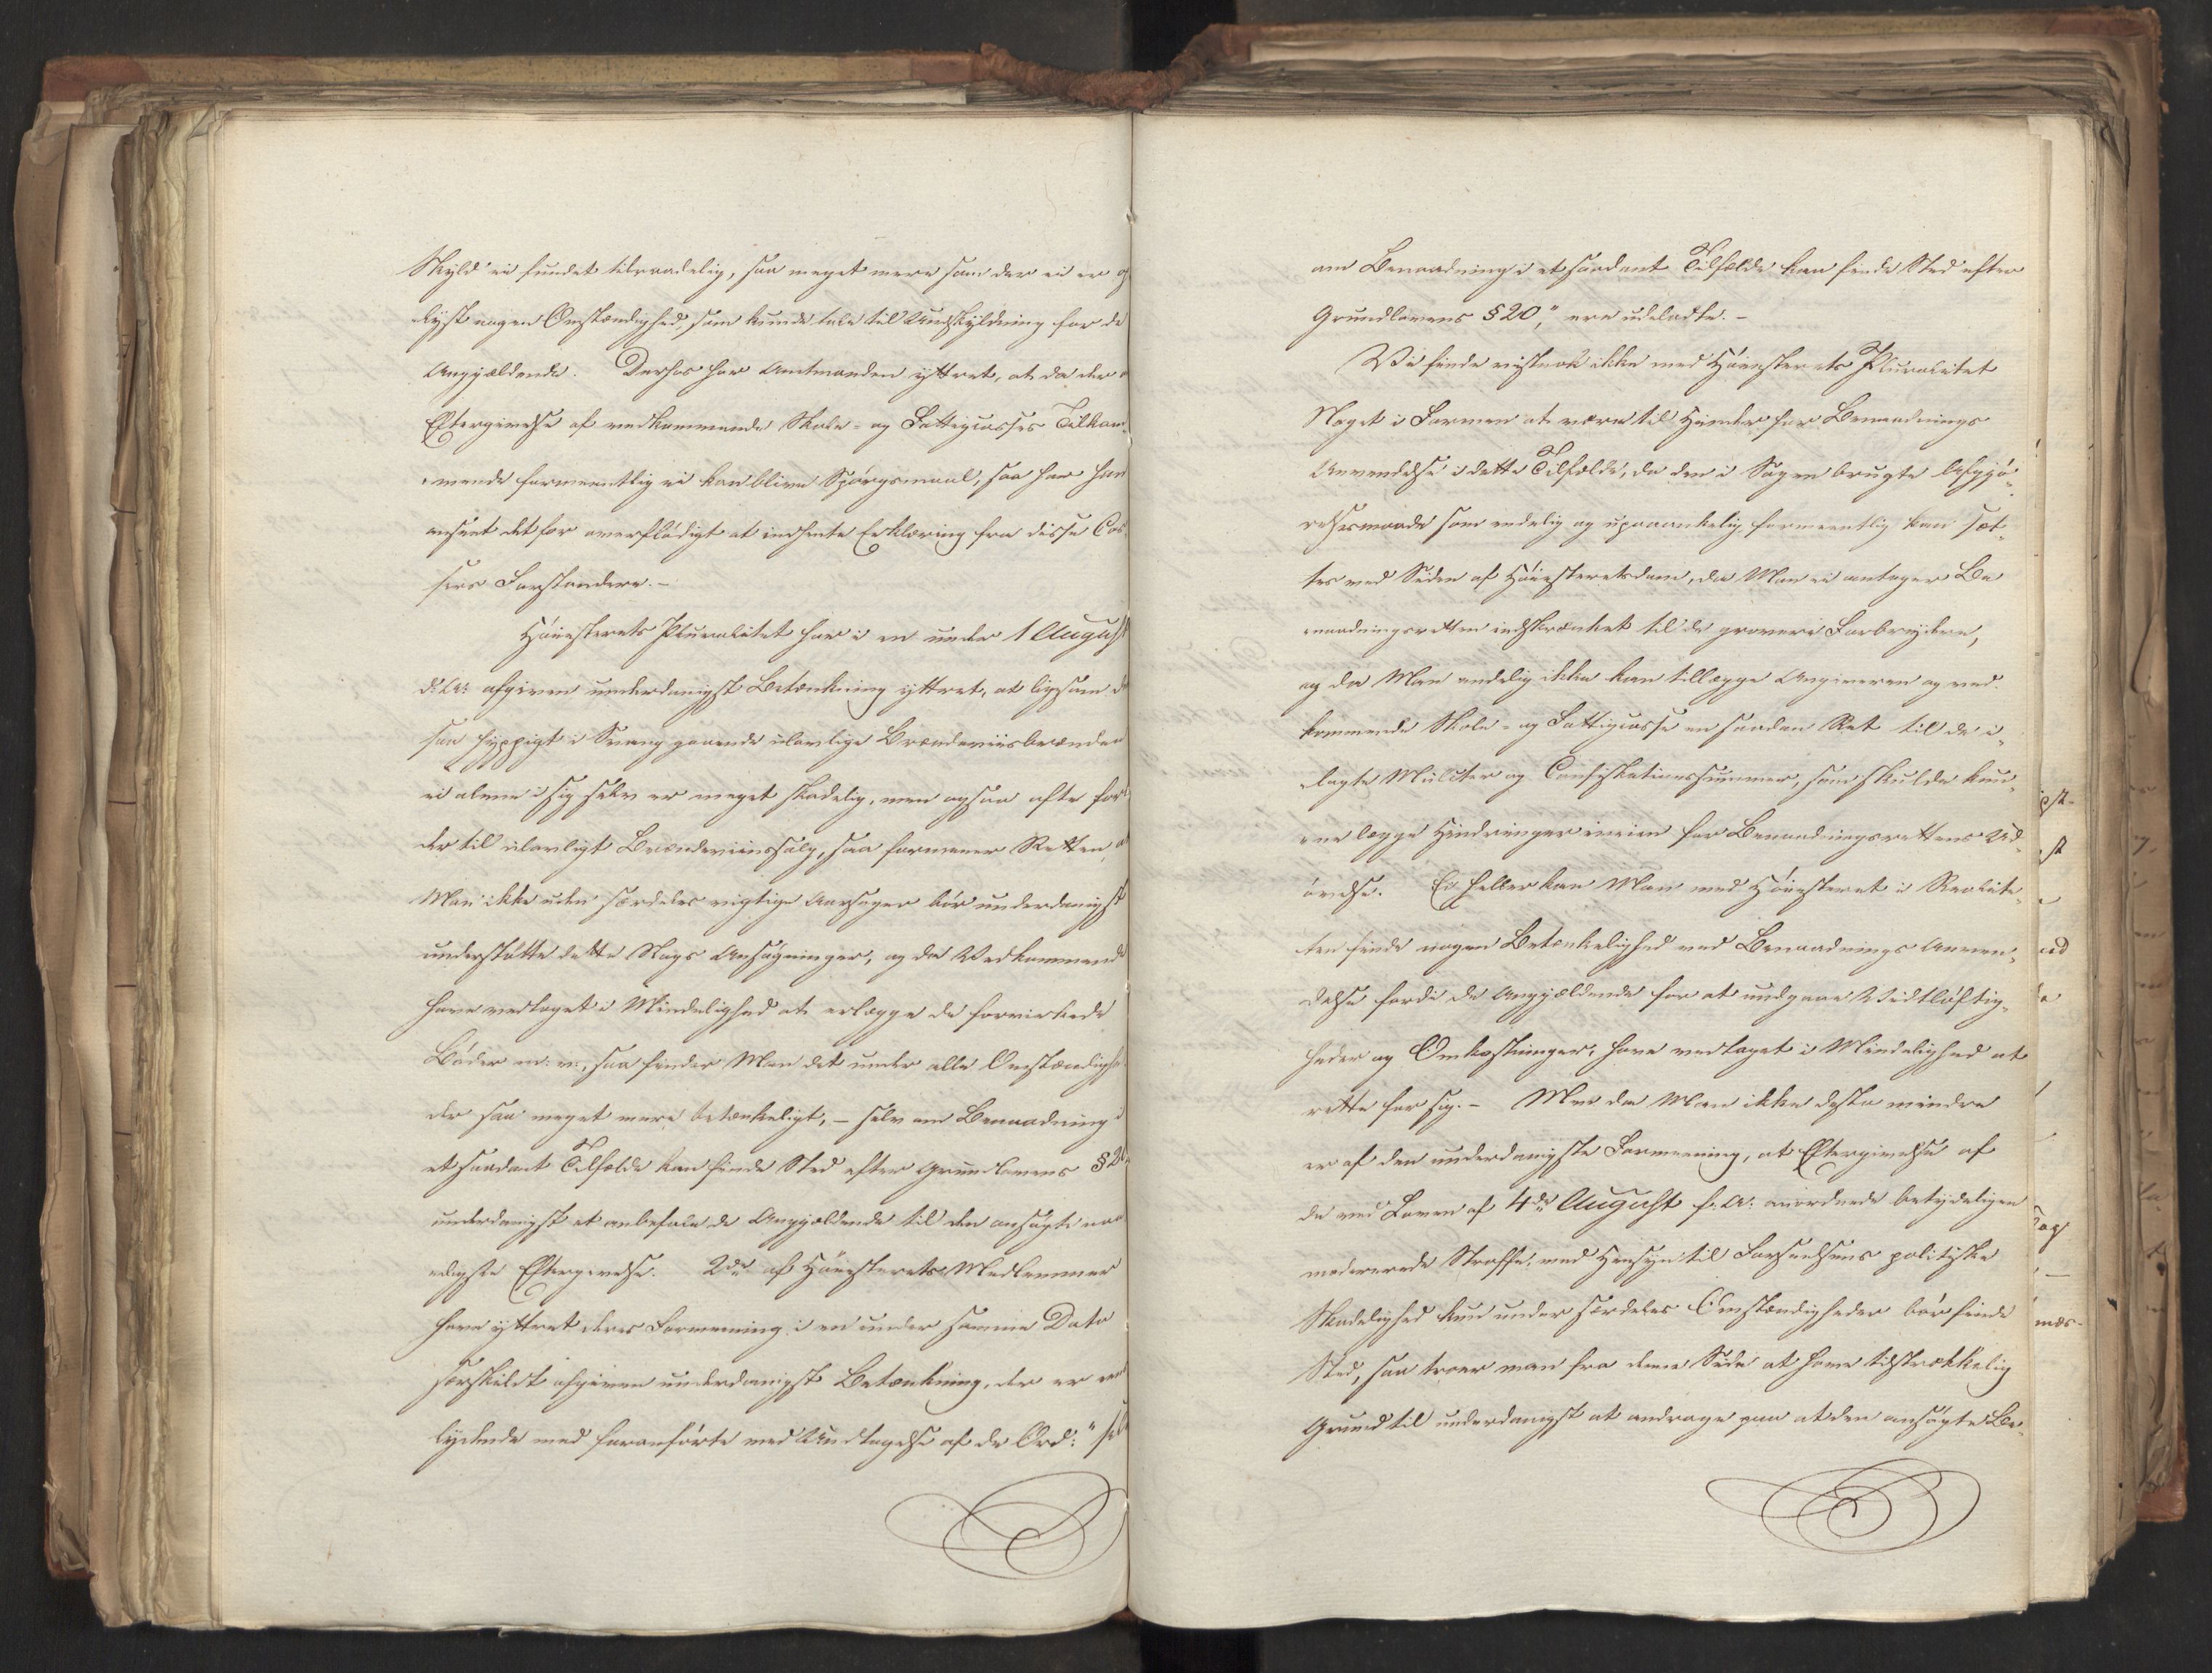 Skyld ei fundet tilraadelig, saa meget mere som der ei er op
lyst nogen Omstændighed, som kunde tale til Undskyldning for de
Angjældende. Derhos har Amtmanden yttret, at da der
Eftergivelse af vedkommende Skole- og Fattigcasses Tilkom,
mende formeentlig ei kan blive Spørgsmaal, saa har han
anseet det for overflødigt at indhente Erklæring fra disse Cas,
sers Forstandere. -
Høiesterets Pluralitet har i en under 1 August
d: A: afgiven underdanigst Betænkning yttret, at ligesom d
saa hyppigt i Svang gaaende ulovlige Brændeviinsbrænden
ei alene i sig selv er meget skadelig, men ogsaa ofte fører
der til ulovligt Brændeviinssalg, saa formener Retten, at
Man ikke uden særdeles vigtige Aarsager bør underdanigst
understøtte dette Slags Ansøgninger, og da Vedkommende
have vedtaget i Mindelighed at erlægge de forvirkede
Bøder m: v:, saa finder Man det under alle Omstændighe
der saa meget mere betænkeligt, - selv om Benaadning i
et saadant Tilfælde kan finde Sted efter Grundlovens § 20,
underdanigst at anbefale de Angjældende til den ansøgte naa
digste Eftergivelse. 2de af Høiesterets Medlemmer
have yttret deres Formening i en under samme Dato
særskildt afgiven underdanigst Betænkning, der er eens
lydende med foranførte med Undtagelse af de Ord: "selv
om Benaadning i et saadant Tilfælde kan finde Sted efter
Grundlovens § 20", ere udeladte. -
Vi finde vistnok ikke med Høiesterets Pluralitet
Noget i Formen at være til Hinder for Benaadnings
Anvendelse i dette Tilfælde, da den i Sagen brugte Afgjø,
relsesmaade som endelig og upaaankelig formeentlig kan sæt,
tes ved Siden af Høiesteretsdom, da Man ei antager Be
naadningsretten indskrænket til de grovere Forbrydere,
og da Man endelig ikke kan tillægge Angiveren og ved,
kommende Skole- og Fattigcasse en saadan Ret til de i,
lagte Mulcter og Confiskationssummer, som skulde kun,
ne lægge Hindringer iveien for Benaadningsrettens Ud,
øvelse. Ei heller kan Man med Høiesteret i Realite,
ten finde nogen Betænkelighed ved Benaadnings Anven,
delse fordi de Angjældende for at undgaae Vidtløftig,
heder og Omkostninger, have vedtaget i Mindelighed at
rette for sig. - Men da Man ikke desto mindre
er af den underdanigste Formening, at Eftergivelse af
de ved Loven af 4de August f: A: anordnede betydeligen
modererede Straffe, med Hensyn til Forseelsens politiske
Skadelighed kun under særdeles Omstændigheder bør finde
Sted, saa troer man fra denne Side at have tilstrækkelig
Grund til underdanigst at andrage paa at den ansøgte Be,